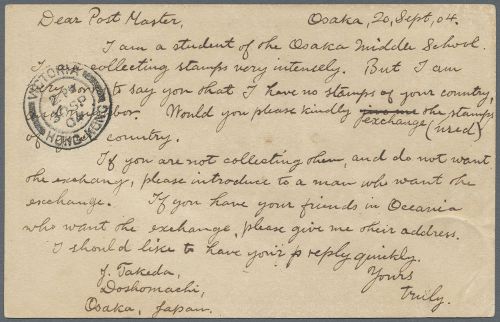 Dear Post Master, Osaka, 20, Sept, 04.
I am a student of the Osaka Middle School.
collecting stamps very intensely. But I am
to say you that I have no stamps of your country,
Would you please kindly give me the stamps
exchange (used)
of country.
If you are not collecting them, and do not want
the exchang, please introduce to a man who want the
exchange. If you have your friends in Oceania
who want the exchange, please give me their address.
I should like to have your reply quickly.
J. Takeda, Yours
Doshomachi, truly.
Osaka, Japan.
VICTORIA
HONG-KONG